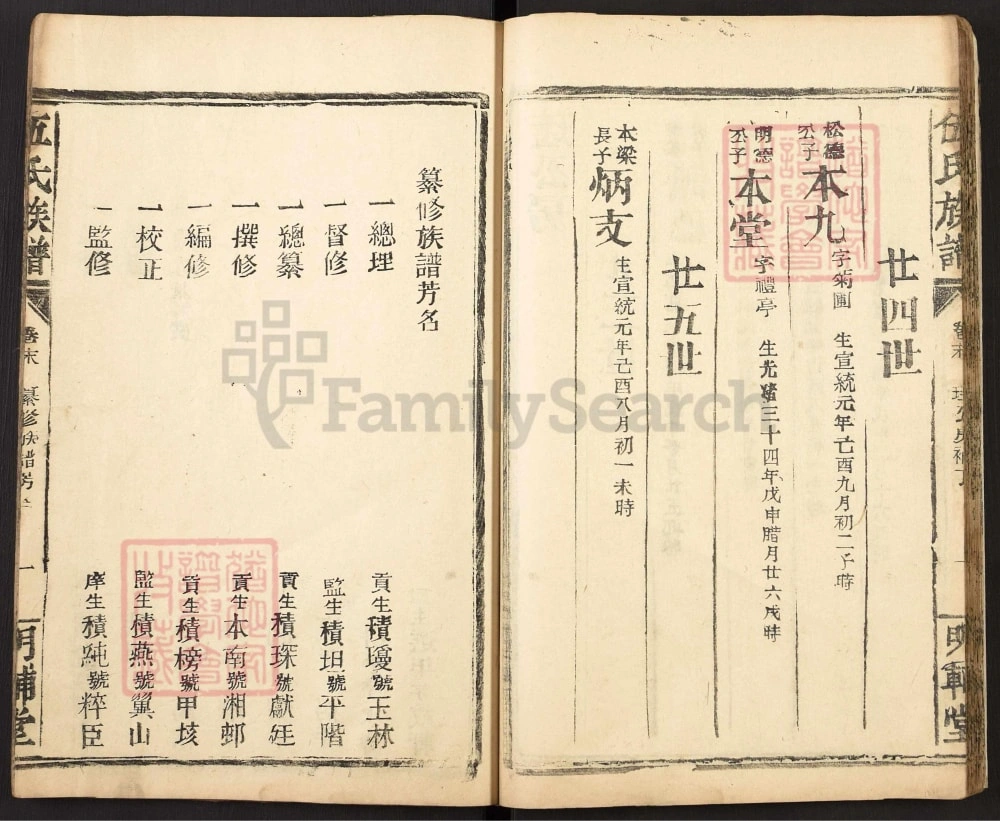 伍氏族譜
卷末
明輔堂
廿四世
松德公子 本九 字菊圃 生宣統元年己酉九月初二子時
明德公子 本堂 字禮亭 生光緒三十四年戊申腊月廿六戌時
廿五世
本梁長子 炳支 生宣統元年己酉八月初一未時
纂修族譜芳名
一總理 貢生積瓊號玉林
一督修 監生積坦號平階
一總纂 貢生積琛號獻廷
一撰修 貢生本南號湘邨
一編修 貢生積榜號甲垓
一校正 監生積燕號翼山
一監修 庠生積純號粹臣
伍氏族譜
卷末 纂修族譜芳名
一
明輔堂
FamilySearch